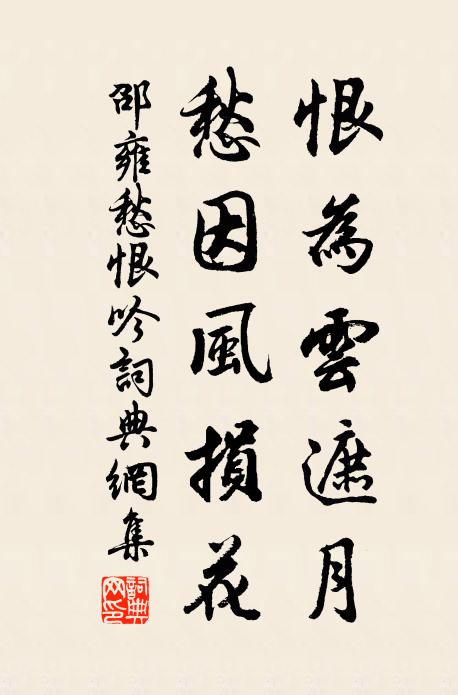 恨為雲遮月
愁因風損花
邵雍愁恨吟詞典網集
詞典網印